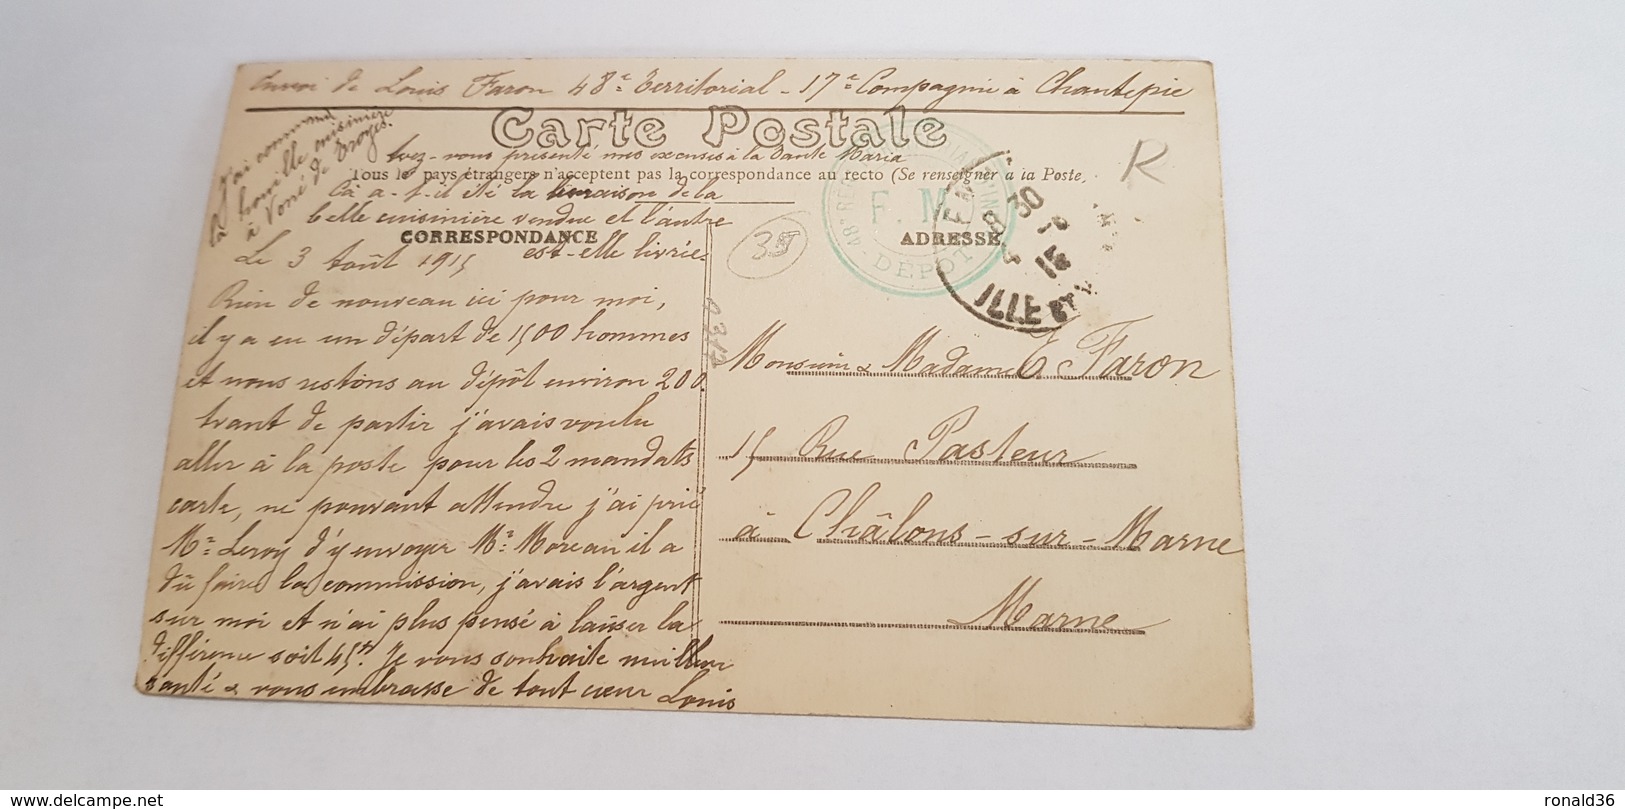 Envoi de Louis Faron 48e Territorial - 17e Compagnie à Chantepie
Carte Postale
J'ai commandé
la houille cuisinière
à Voné de Troyes.
Avez-vous présenté mes excuses à la tante Maria
Tous les pays étrangers n'acceptent pas la correspondance au recto (Se renseigner à la Poste,
Ca a-t-il été la livraison de la
belle cuisinière vendue et l'autre
est-elle livrée
CORRESPONDANCE
ADRESSE
Le 3 Août 1915
Rien de nouveau ici pour moi,
il y a eu un départ de 1500 hommes
et nous restons au dépôt environ 200.
Avant de partir j'avais voulu
aller à la poste pour les 2 mandats
carte, ne pouvant attendre j'ai prié
Mr Leroy d'y envoyer Mr Moreau il a
dû faire la commission, j'avais l'argent
sur moi et n'ai plus pensé à laisser la
différence soit 45f. Je vous souhaite meilleure
santé & vous embrasse de tout cœur Louis
Monsieur & Madame E Faron
15 Rue Pasteur
à Châlons-sur-Marne
Marne
F. M.
DÉPOT
8 30
4 - 8
15
ILLE ET
R
35
ronald36
delcampe.net